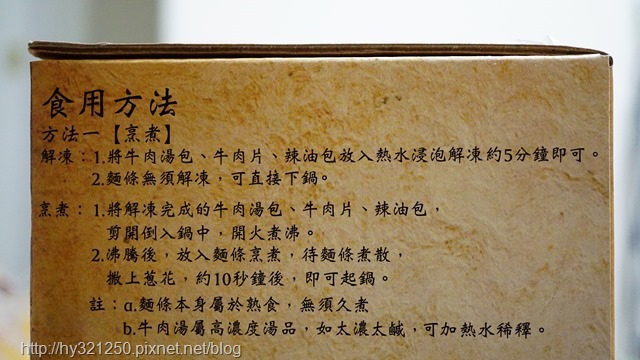 食用方法
方法一【烹煮】
解凍：1.將牛肉湯包、牛肉片、辣油包放入熱水浸泡解凍約5分鐘即可。
2.麵條無須解凍，可直接下鍋。
烹煮：1.將解凍完成的牛肉湯包、牛肉片、辣油包，
剪開倒入鍋中，開火煮沸。
2.沸騰後，放入麵條烹煮，待麵條煮散，
撒上蔥花，約10秒鐘後，即可起鍋。
註：a.麵條本身屬於熟食，無須久煮
b.牛肉湯屬高濃度湯品，如太濃太鹹，可加熱水稀釋。
http://hy321250.pixnet.net/blog